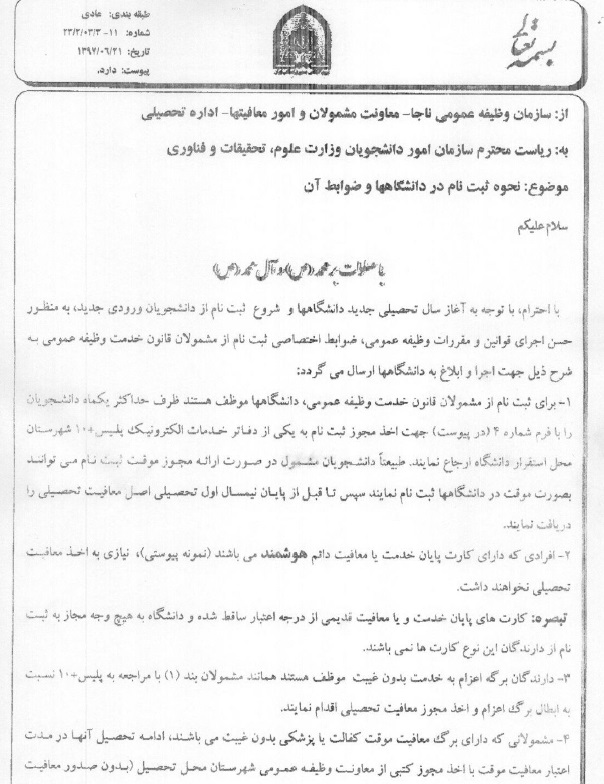 بسمه تعالی
طبقه بندی: عادی
شماره: ۱۱- ۲۳/۲/۰۳/۳
تاریخ: ۱۳۹۲/۰۶/۲۱
پیوست: دارد.
از: سازمان وظیفه عمومی ناجا- معاونت مشمولان و امور معافیتها- اداره تحصیلی
به: ریاست محترم سازمان امور دانشجویان وزارت علوم، تحقیقات و فناوری
موضوع: نحوه ثبت نام در دانشگاهها و ضوابط آن
سلام علیکم
با صلوات بر محمد (ص) و آل محمد (ص)
با احترام، با توجه به آغاز سال تحصیلی جدید دانشگاهها و شروع ثبت نام از دانشجویان ورودی جدید، به منظور
حسن اجرای قوانین و مقررات وظیفه عمومی، ضوابط اختصاصی ثبت نام از مشمولان قانون خدمت وظیفه عمومی به
شرح ذیل جهت اجرا و ابلاغ به دانشگاهها ارسال می گردد:
۱- برای ثبت نام از مشمولان قانون خدمت وظیفه عمومی، دانشگاهها موظف هستند ظرف حداکثر یکماه دانشجویان
را با فرم شماره ۴ (در پیوست) جهت اخذ مجوز ثبت نام به یکی از دفاتر خدمات الکترونیک پلیس+۱۰ شهرستان
محل استقرار دانشگاه ارجاع نمایند. طبیعتاً دانشجویان مشمول در صورت ارائه مجوز موقت ثبت نام می توانند
بصورت موقت در دانشگاهها ثبت نام نمایند سپس تا قبل از پایان نیمسال اول تحصیلی اصل معافیت تحصیلی را
دریافت نمایند.
۲- افرادی که دارای کارت پایان خدمت یا معافیت دائم هوشمند می باشند (نمونه پیوستی)، نیازی به اخذ معافیت
تحصیلی نخواهند داشت.
تبصره: کارت های پایان خدمت و یا معافیت قدیمی از درجه اعتبار ساقط شده و دانشگاه به هیچ وجه مجاز به ثبت
نام از دارندگان این نوع کارت ها نمی باشند.
۳- دارندگان برگه اعزام به خدمت بدون غیبت موظف هستند همانند مشمولان بند (۱) با مراجعه به پلیس+۱۰ نسبت
به ابطال برگ اعزام و اخذ مجوز معافیت تحصیلی اقدام نمایند.
۴- مشمولانی که دارای برگ معافیت موقت کفالت یا پزشکی بدون غیبت می باشند، ادامه تحصیل آنها در مدت
اعتبار معافیت موقت با اخذ مجوز کتبی از معاونت وظیفه عمومی شهرستان محل تحصیل (بدون صدور معافیت